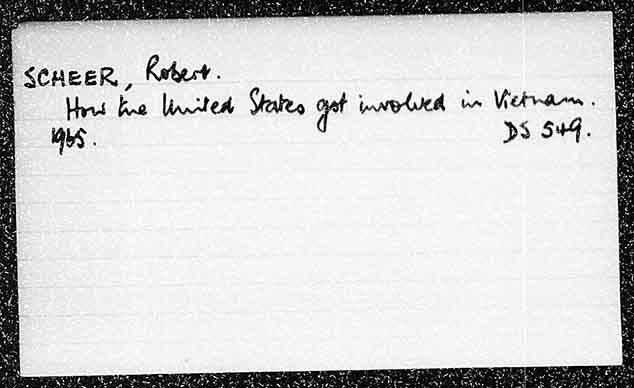 SCHEER, Robert.
How the United States got involved in Vietnam.
1965.
DS 549.